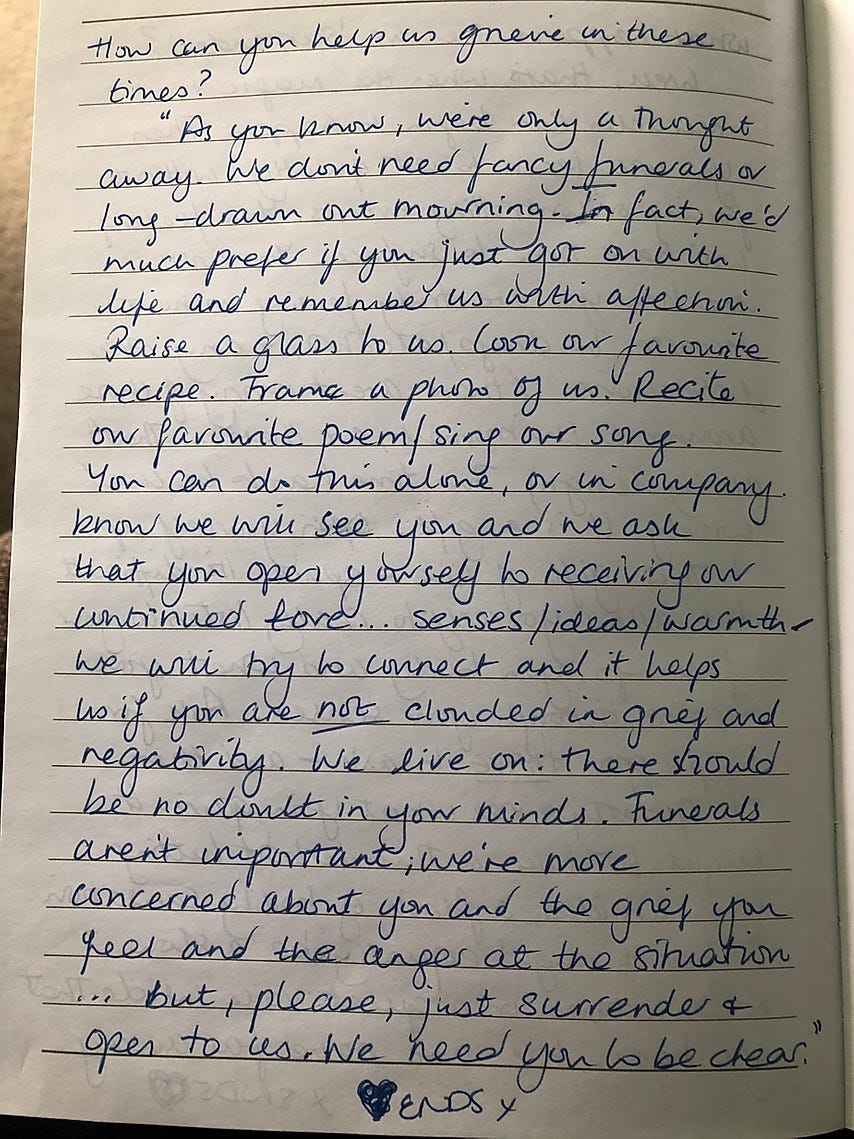 How can you help us grieve in these
times?
"As you know, we're only a thought
away. We don't need fancy funerals or
long-drawn out mourning. In fact, we'd
much prefer if you just got on with
life and remember us with affection.
Raise a glass to us. Cook our favourite
recipe. Frame a photo of us. Recite
our favourite poem/sing our song.
You can do this alone, or in company.
know we will see you and we ask
that you open yourself to receiving our
continued love... senses/ideas/warmth-
we will try to connect and it helps
us if you are not clouded in grief and
negativity. We live on: there should
be no doubt in your minds. Funerals
aren't important; we're more
concerned about you and the grief you
feel and the anger at the situation
... but, please, just surrender &
open to us. We need you to be clear."
ENDS x